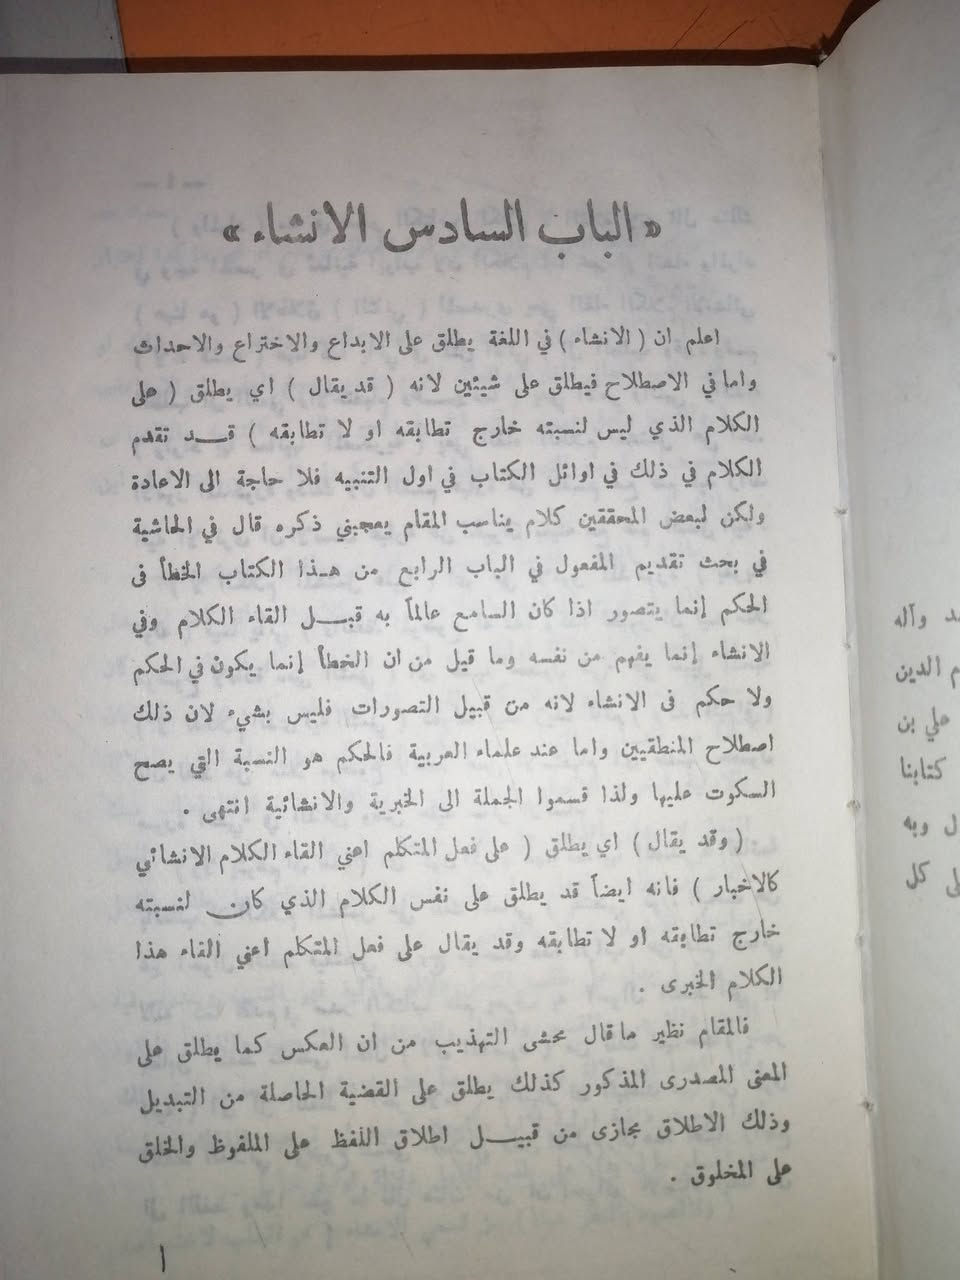 « الباب السادس الانشاء »
اعلم ان ( الانشاء ) في اللغة يطلق على الابداع والاختراع والاحداث
واما في الاصطلاح فيطلق على شيئين لانه ( قد يقال ) اي يطلق ( على
الكلام الذي ليس لنسبته خارج تطابقه او لا تطابقه ) قد تقدم
الكلام في ذلك في اوائل الكتاب في اول التنبيه فلا حاجة الى الاعادة
ولكن لبعض المحققين كلام يناسب المقام يعجبني ذكره قال في الحاشية
في بحث تقديم المفعول في الباب الرابع من هذا الكتاب الخطأ فى
الحكم إنما يتصور اذا كان السامع عالماً به قبل القاء الكلام وفي
الانشاء إنما يفهم من نفسه وما قيل من ان الخطأ إنما يكون في الحكم
ولا حكم فى الانشاء لانه من قبيل التصورات فليس بشيء لان ذلك
اصطلاح المنطقيين واما عند علماء العربية فالحكم هو النسبة التي يصح
السكوت عليها ولذا قسموا الجملة الى الخبرية والانشائية انتهى .
( وقد يقال ) اي يطلق ( على فعل المتكلم اعني القاء الكلام الانشائي
كالاخبار ) فانه ايضاً قد يطلق على نفس الكلام الذي كان لنسبته
خارج تطابقه او لا تطابقه وقد يقال على فعل المتكلم اعني القاء هذا
الكلام الخبرى .
فالمقام نظير ما قال محشى التهذيب من ان العكس كما يطلق على
المعنى المصدرى المذكور كذلك يطلق على القضية الحاصلة من التبديل
وذلك الاطلاق مجازى من قبيل اطلاق اللفظ على الملفوظ والخلق
على المخلوق .
د وآله
م الدين
علي بن
كتابنا
ل وبه
كل